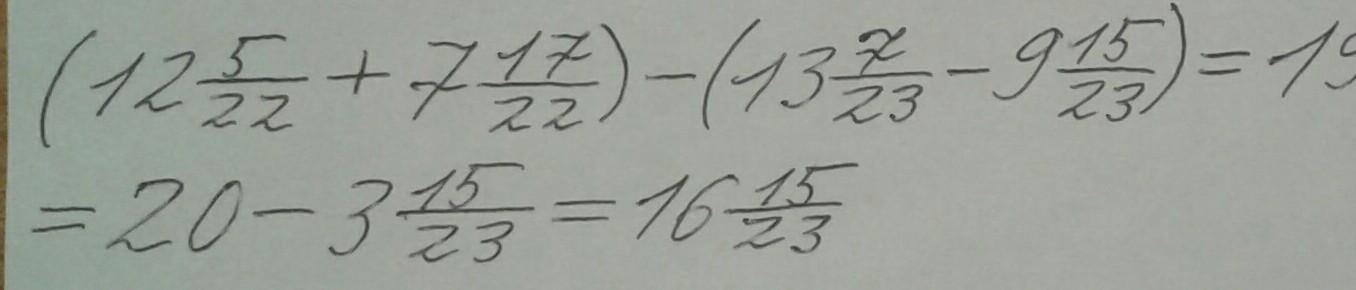 (12 5/22 + 7 17/22) - (13 7/23 - 9 15/23) = 19
= 20 - 3 15/23 = 16 15/23